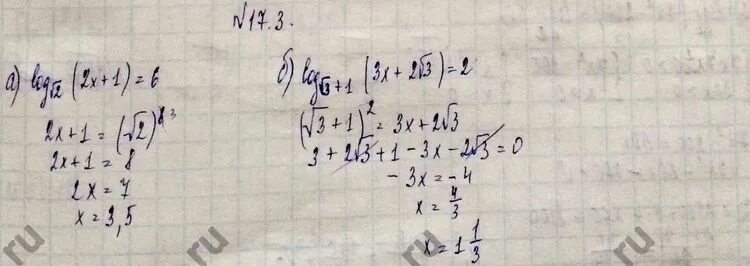 №17.3.
а) log_√2 (2x+1)=6
2x+1=(√2)^6 3
2x+1=8
2x=7
x=3,5
б) log_√3+1 (3x+2√3)=2
(√3+1)²=3x+2√3
3+2√3+1-3x-2√3=0
-3x=-4
x=4/3
x=1 1/3
ru
ru
ru